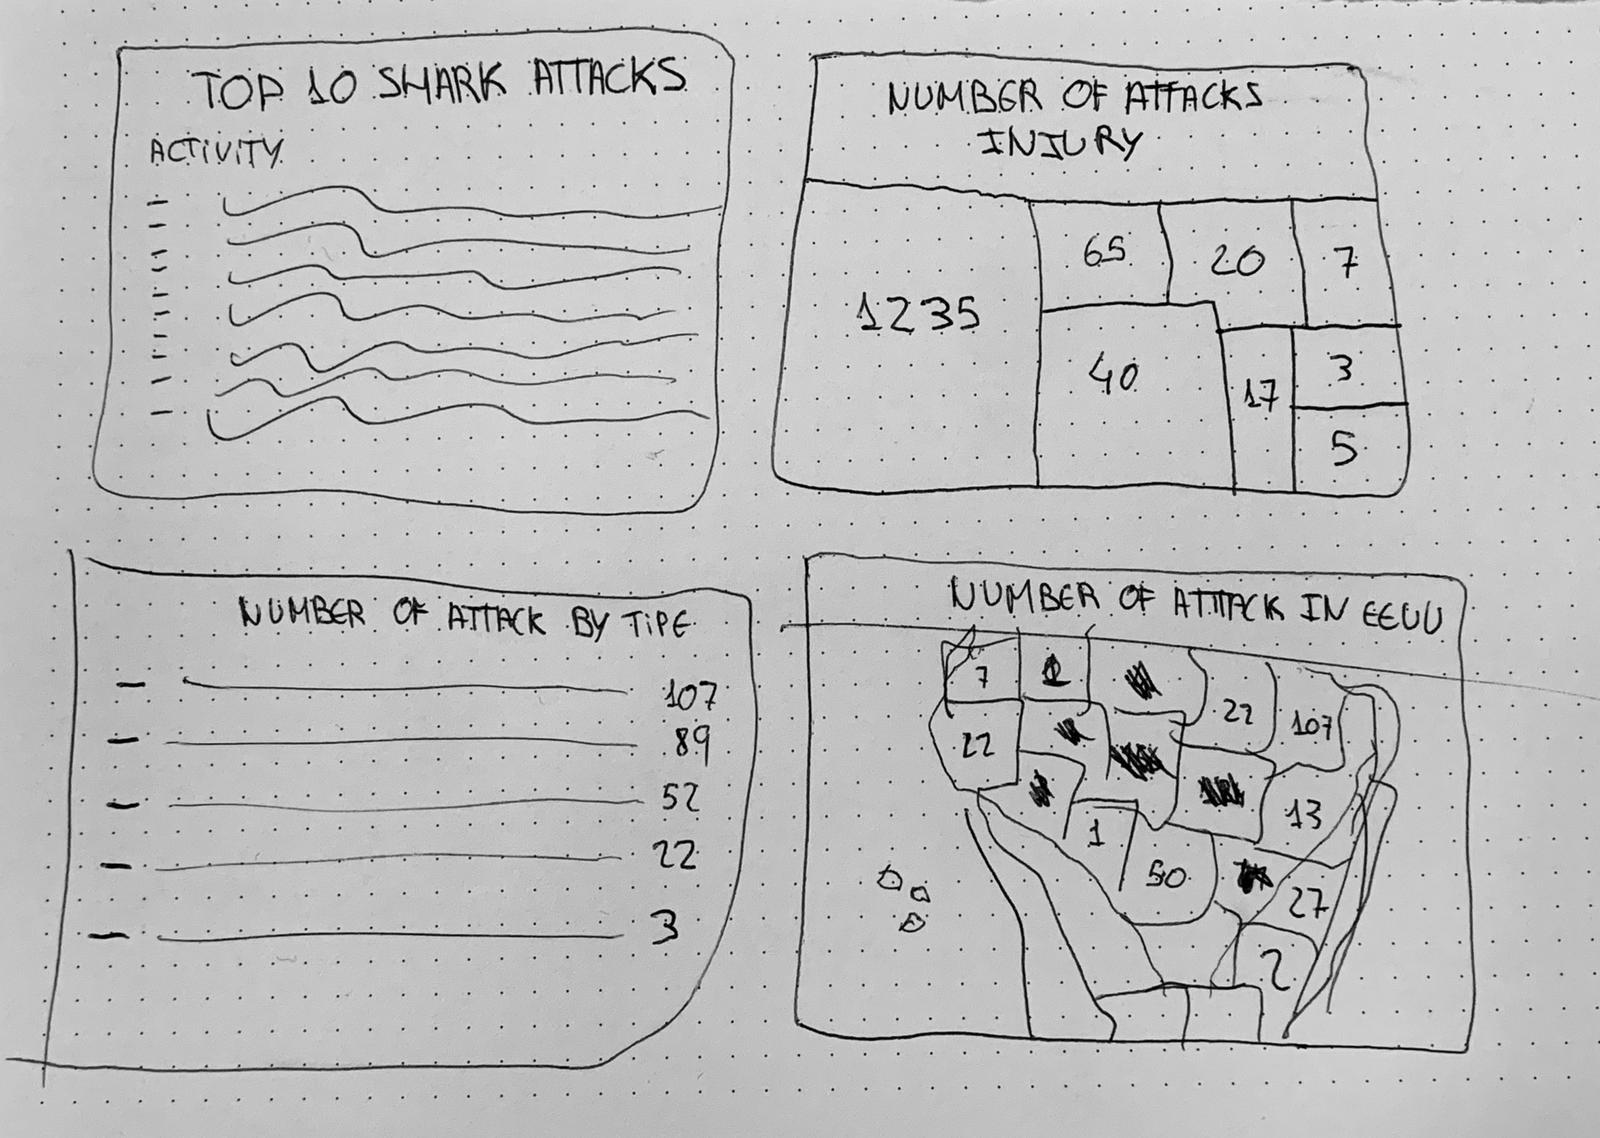 TOP 10 SHARK ATTACKS
ACTIVITY
NUMBER OF ATTACKS
INJURY
1235
65
20
7
40
17
3
5
NUMBER OF ATTACK BY TIPE
107
89
52
22
3
NUMBER OF ATTTACK IN EEUU
7
22
22
107
13
1
50
27
2